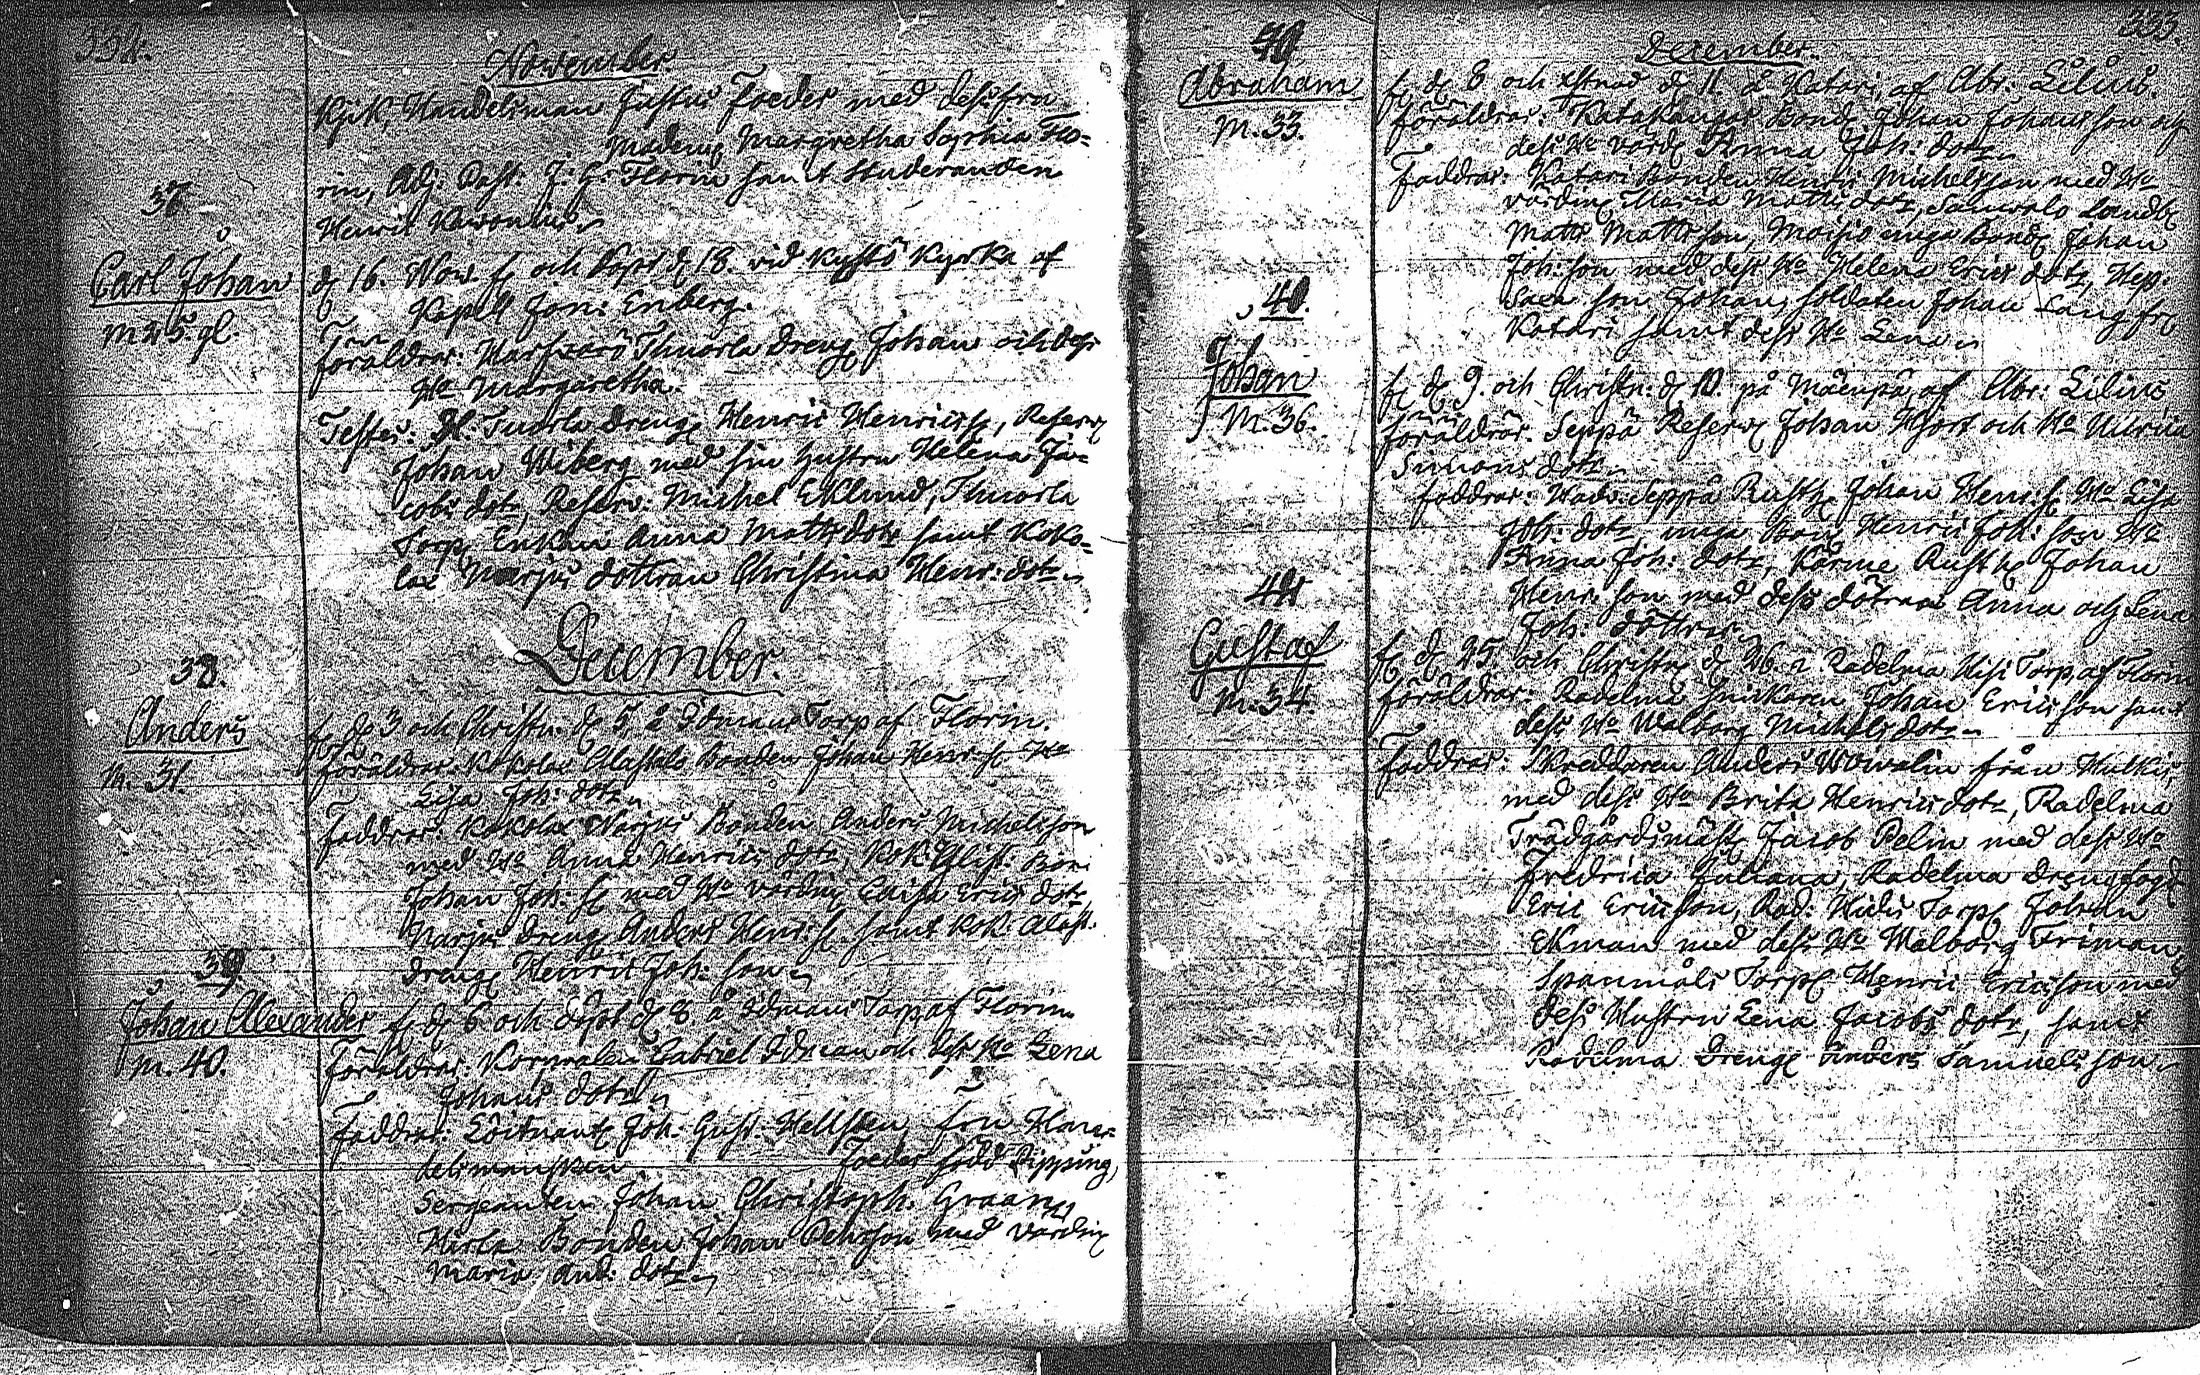 332.
November.
Kyrk, Handelsman Justus Foeder med dess fru
Madame Margretha Sophia Flo-
rin, Adj: Past: J: G: Florin samt Studeranden
Henric Kavonius
37
Carl Johan
M 25. gl.
d 16. Nov. f. och döpt d 18. vid Kustö Kyrka af
Kapell Jon: Enberg.
Föräldrar: Thuorla Dreng Johan och dess
Ho Margaretha.
Testes: Tuorla Dreng Henric Henricss, Reserv
Johan Wiberg med sin hustru Helena Ja-
cobs dotr, Reserv: Michel Eklund, Thuorla
Torp Enkan Anna Matts dotr samt Koko-
la Narjus dottran Christina Henr: dotr
December.
38.
Anders
M. 31.
f. d 3 och Christn: d 5 å Idmans Torp af Florin.
Föräldrar: Kokola Alastalo Bonden Johan Henr: s. Ho
Lisa Joh: dotr
Faddrar: Kokola Narjus Bonden Anders Michelsson
med Ho Anna Henrics dotr, Kok: Alast: Bon:
Johan Joh: s. med Ho värdin Caisa Erics dotr,
Narjus dreng Anders Henr: s. samt Kok: Alast:
dreng Henric Joh: son
39
Johan Alexander
M. 40.
f. d 6 och döpt d 8. å Idmans Torp af Florin
Föräldrar: Korpralen Gabriel Idman och dess Ho Lena
Johans dotr
Faddrar: Löitnant Joh: Gust: Hellsten, Fru Han-
delsmanskan Foeder född Pipping,
Sergeanten Johan Christoph: Graan
Hirla Bonden Johan Pehrsson med värdin
Maria And: dotr
333.
December.
40
Abraham
M. 33.
f. d 8 och d 11. å Katari af Abr: Lilius.
Föräldrar: Katakangas Bond Johan Johansson och
dess Ho värd Anna Joh: dotr
Faddrar: Katari Bonden Henric Michelsson med Ho
värdin Maria Matts dotr, Landb
Matts Mattsson, Moisio unga Bond Johan
Joh: son med dess Ho Helena Erics dotr,
son Johan, soldaten Johan Lång
Katari samt dess Ho Lena
40.
Johan
M. 36.
f. d 9. och Christn: d 10. på Mäenpä, af Abr: Lilius
Föräldrar: Seppä Reserv Johan Hjort och Ho Ulrica
Simons dotr
Faddrar: Seppä Rusth Johan Henr: s. Ho Lisa
Joh: dotr, unga Bon Henric Joh: son Ho
Anna Joh: dotr, Kärme Rusth Johan
Henr: son med dess döttrar Anna och Lena
Joh: döttrar
41
Gustaf
M. 34.
f. d 25 och Christn d 26. å Radelma Hisi Torp, af Florin
Föräldrar: Radelma Snickaren Johan Ericsson samt
dess Ho Walborg Michels dotr
Faddrar: Skreddaren Anders Wowalin från Hulkis,
med dess Ho Brita Henrics dotr, Radelma
Trädgårdsmäst Jacob Pelin med dess Ho
Fredrica Juliana, Radelma Drengfogd
Eric Ericsson, Rad: Hidis Torp Johan
Ekman med dess Ho Walborg Friman
Spanmåls Torp Henric Ericsson med
dess Hustru Lena Jacobs dotr, samt
Radelma Dreng Anders Samuelsson